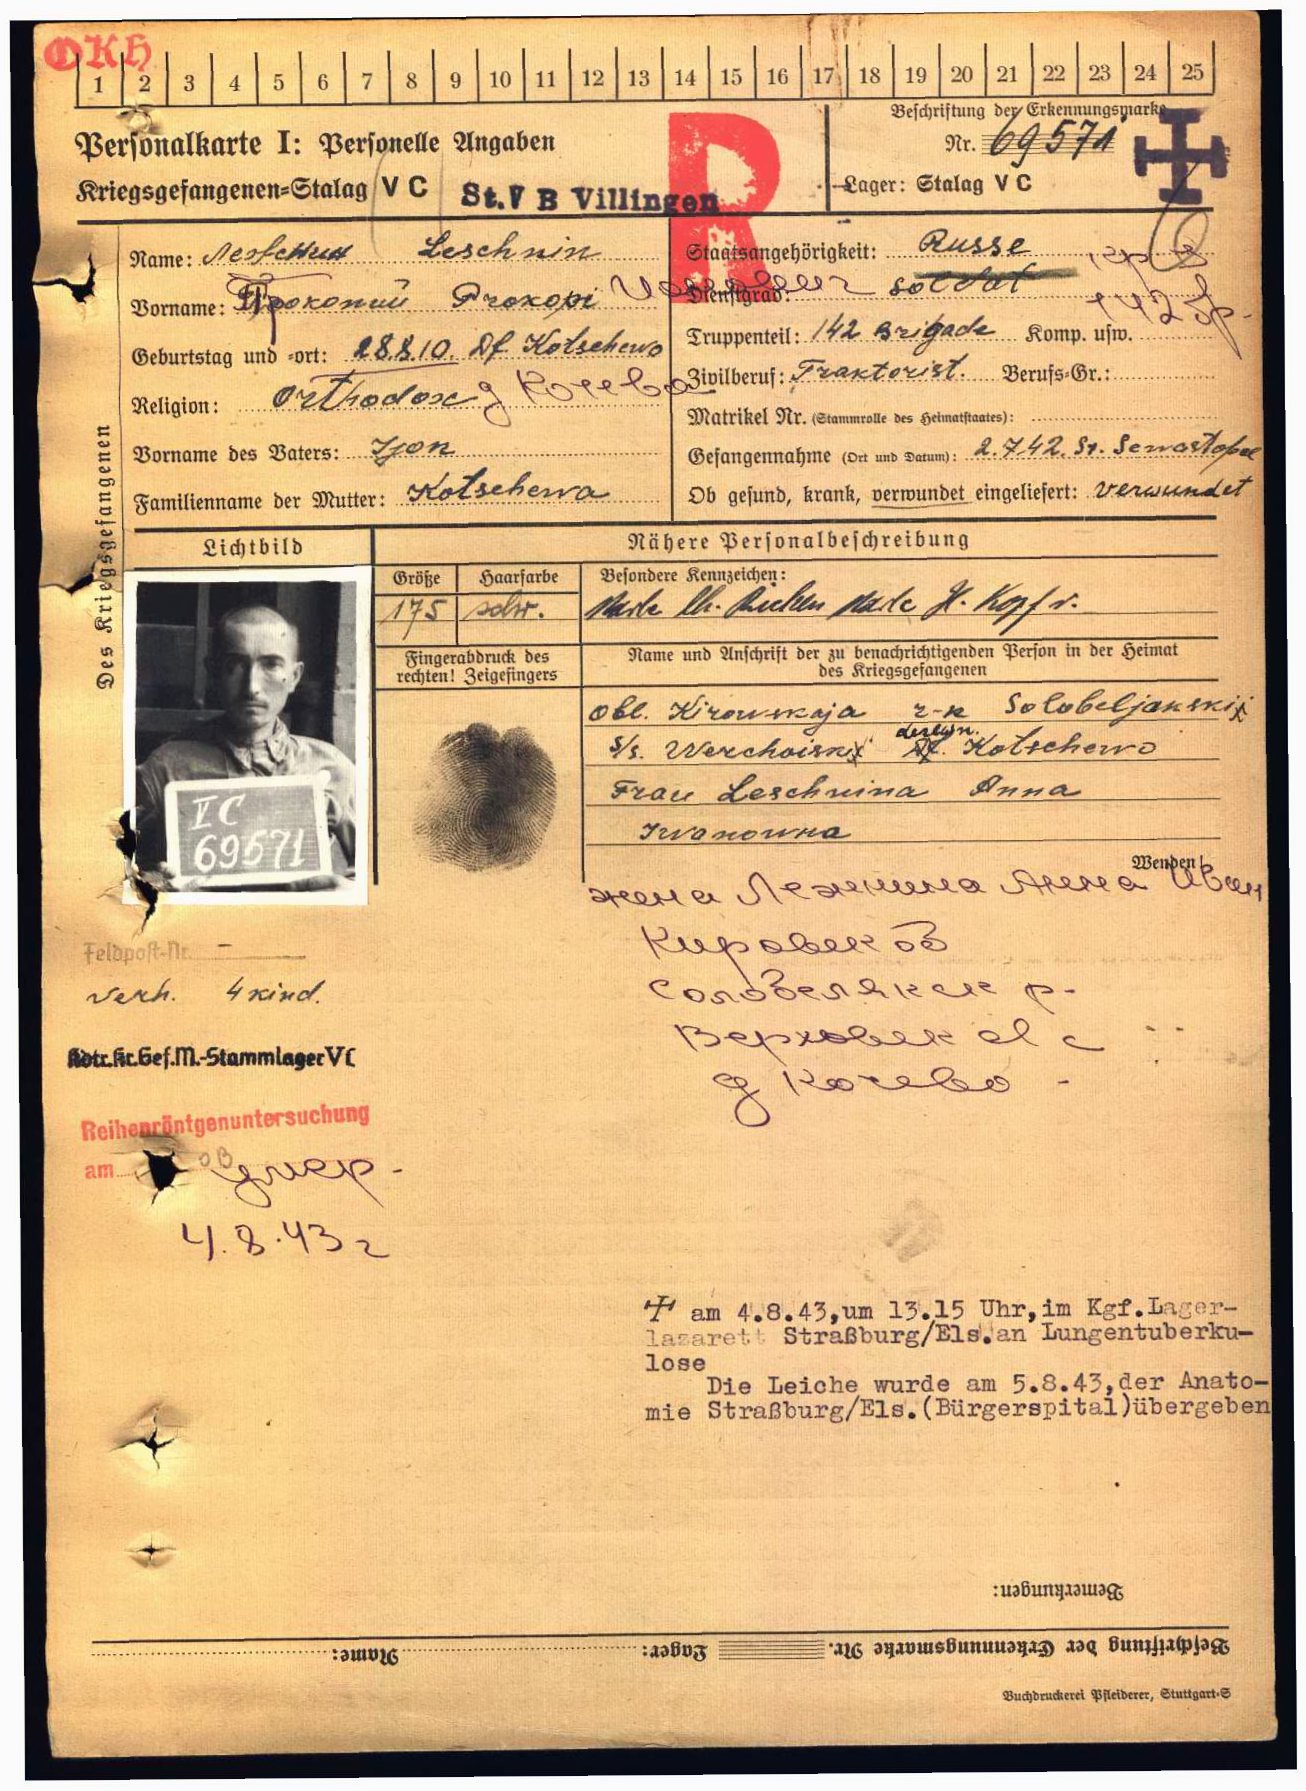 OKH
1 2 3 4 5 6 7 8 9 10 11 12 13 14 15 16 17 18 19 20 21 22 23 24 25
Personalkarte I: Personelle Angaben
Kriegsgefangenen-Stalag V C St. V B Villingen
R
Beschriftung der Erkennungsmarke
Nr. 69571
Lager: Stalag V C
Des Kriegsgefangenen
Name: Лежнин Leschnin
Vorname: Прокопий Prokopi
Иванович
Geburtstag und -ort: 28.8.10. Df Kotschewo
д Кочево
Religion: Orthodox
Vorname des Vaters: Iwan
Familienname der Mutter: Kotschewa
Staatsangehörigkeit: Russe
Dienstgrad: Soldat
кр-ц
142 бр-
Truppenteil: 142 Brigade Komp. usw.
Zivilberuf: Traktorist. Berufs-Gr.:
Matrikel Nr. (Stammrolle des Heimatstaates):
Gefangennahme (Ort und Datum): 2.7.42. St. Sewastopol
Ob gesund, krank, verwundet eingeliefert: verwundet
Lichtbild
Nähere Personalbeschreibung
Größe Haarfarbe Besondere Kennzeichen:
175 schw. Narbe lk. Rücken Narbe H. Kopf r.
Fingerabdruck des
rechten! Zeigefingers
Name und Anschrift der zu benachrichtigenden Person in der Heimat
des Kriegsgefangenen
Obl. Kirowskaja r-n Solobeljakski
s/s. Werchoiski derewn. Kotschewo
Frau Leschnina Anna
Iwanowna
Wenden!
VC
69571
жена Лежнина Анна Иван
Кировск об
Солобелякск р-
Верховск с
д Кочево -
Feldpost-Nr. -
verh. 4 kind.
Kdtr. Kr. Gef. M.-Stammlager V C
Reihenröntgenuntersuchung
am
умер -
4.8.43 г
am 4.8.43,um 13.15 Uhr,im Kgf.Lager-
lazarett Straßburg/Els.an Lungentuberku-
lose
Die Leiche wurde am 5.8.43,der Anato-
mie Straßburg/Els.(Bürgerspital)übergeben
Bemerkungen:
Beschriftung der Erkennungsmarke Nr. Lager: Name:
Buchdruckerei Pfleiderer, Stuttgart-S